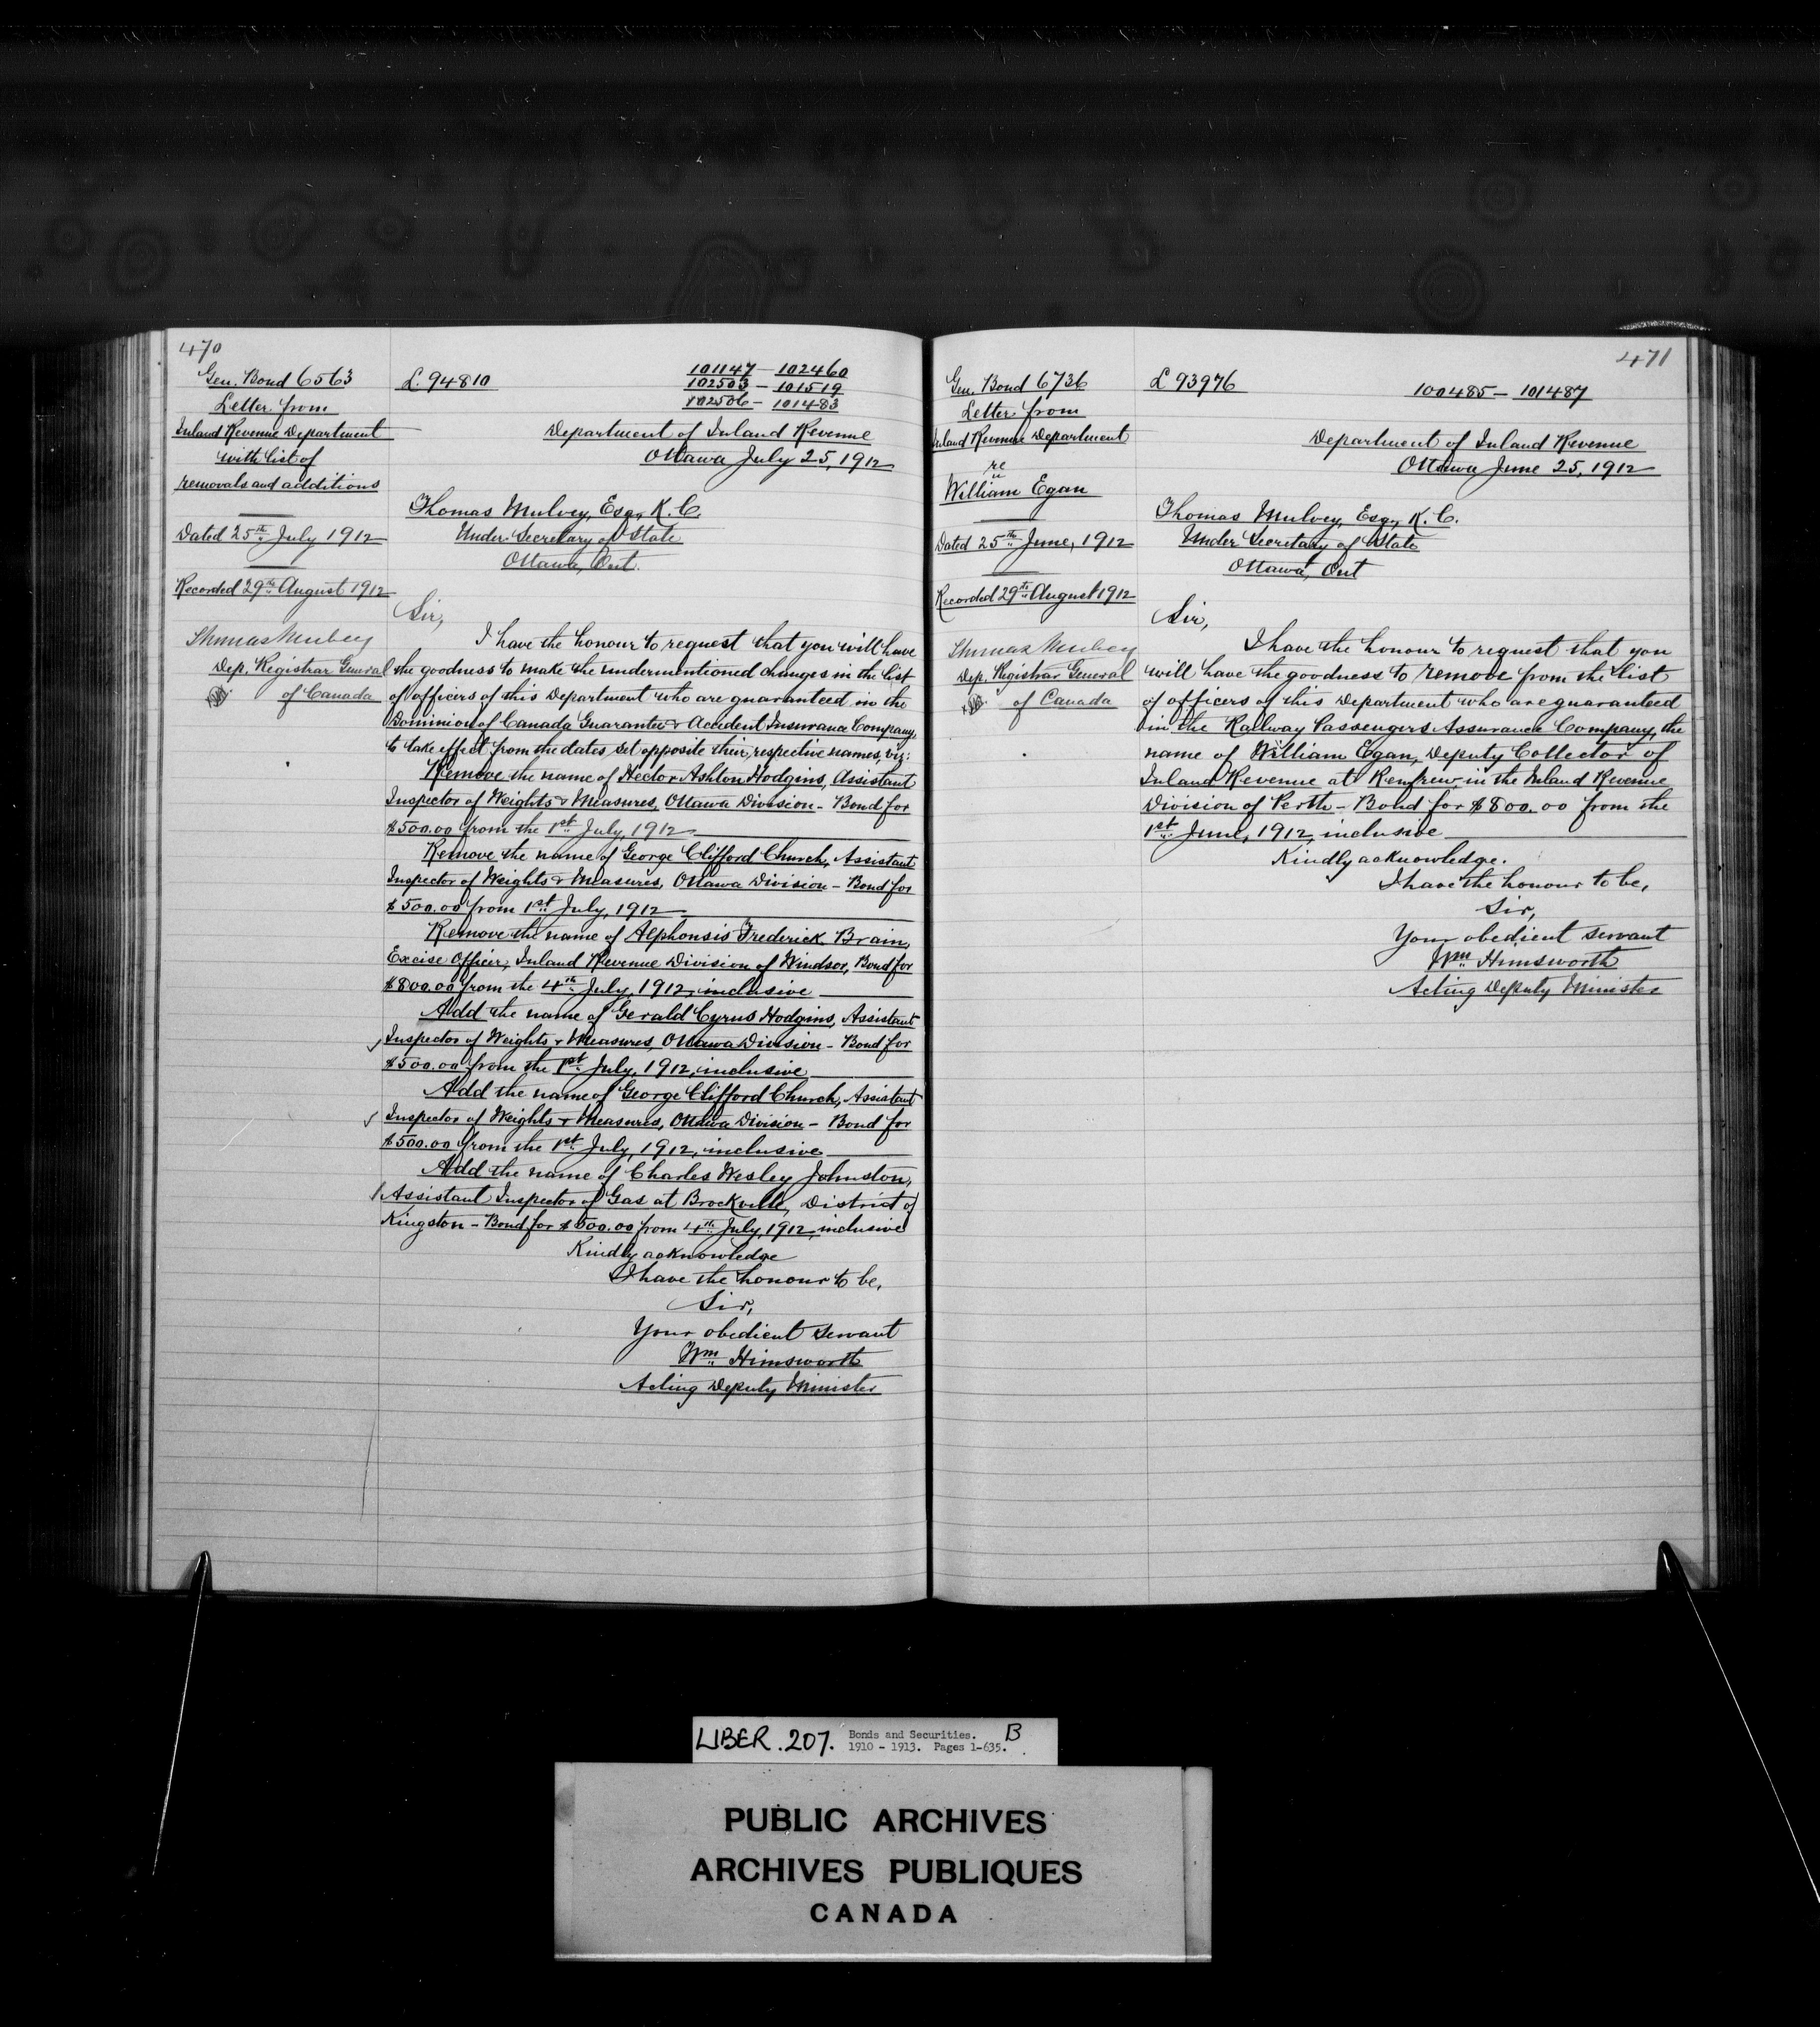 470
Gen. Bond 6563
Letter from
Inland Revenue Department
with list of
removals and additions
Dated 25th July 1912
Recorded 29th August 1912
Thomas Mulvey
Dep. Registrar General
of Canada
L. 94810
101147 – 102460
102503 – 101519
102506 – 101483
Department of Inland Revenue
Ottawa July 25, 1912
Thomas Mulvey, Esq., K.C.
Under Secretary of State
Ottawa, Ont.
Sir,
I have the honour to request that you will have
the goodness to make the undermentioned changes in the list
of officers of this Department who are guaranteed in the
Dominion of Canada Guarantee & Accident Insurance Company,
to take effect from the dates set opposite their respective names, viz:
Remove the name of Hector Ashton Hodgins, Assistant
Inspector of Weights & Measures, Ottawa Division – Bond for
$500.00 from the 1st July, 1912
Remove the name of George Clifford Church, Assistant
Inspector of Weights & Measures, Ottawa Division – Bond for
$500.00 from 1st July, 1912
Remove the name of Alphonsis Frederick Brain,
Excise Officer, Inland Revenue Division of Windsor, Bond for
$800.00 from the 4th July, 1912, inclusive
Add the name of Gerald Cyrus Hodgins, Assistant
Inspector of Weights & Measures, Ottawa Division – Bond for
$500.00 from the 1st July, 1912, inclusive
Add the name of George Clifford Church, Assistant
Inspector of Weights & Measures, Ottawa Division – Bond for
$500.00 from the 1st July, 1912, inclusive
Add the name of Charles Wesley Johnston,
Assistant Inspector of Gas at Brockville, District of
Kingston – Bond for $500.00 from 4th July, 1912, inclusive
Kindly acknowledge
I have the honour to be,
Sir,
Your obedient servant
Wm Himsworth
Acting Deputy Minister
471
Gen. Bond 6736
Letter from
Inland Revenue Department
re
William Egan
Dated 25th June, 1912
Recorded 29th August 1912
Thomas Mulvey
Dep. Registrar General
of Canada
L 93976
100485 – 101487
Department of Inland Revenue
Ottawa June 25, 1912
Thomas Mulvey, Esq., K.C.
Under Secretary of State
Ottawa, Ont
Sir,
I have the honour to request that you
will have the goodness to remove from the list
of officers of this Department who are guaranteed
in the Railway Passengers Assurance Company, the
name of William Egan, Deputy Collector of
Inland Revenue at Renfrew, in the Inland Revenue
Division of Perth – Bond for $800.00 from the
1st June, 1912, inclusive
Kindly acknowledge.
I have the honour to be,
Sir,
Your obedient servant
Wm Himsworth
Acting Deputy Minister
LIBER. 207. Bonds and Securities. B
1910 - 1913. Pages 1-635.
PUBLIC ARCHIVES
ARCHIVES PUBLIQUES
CANADA